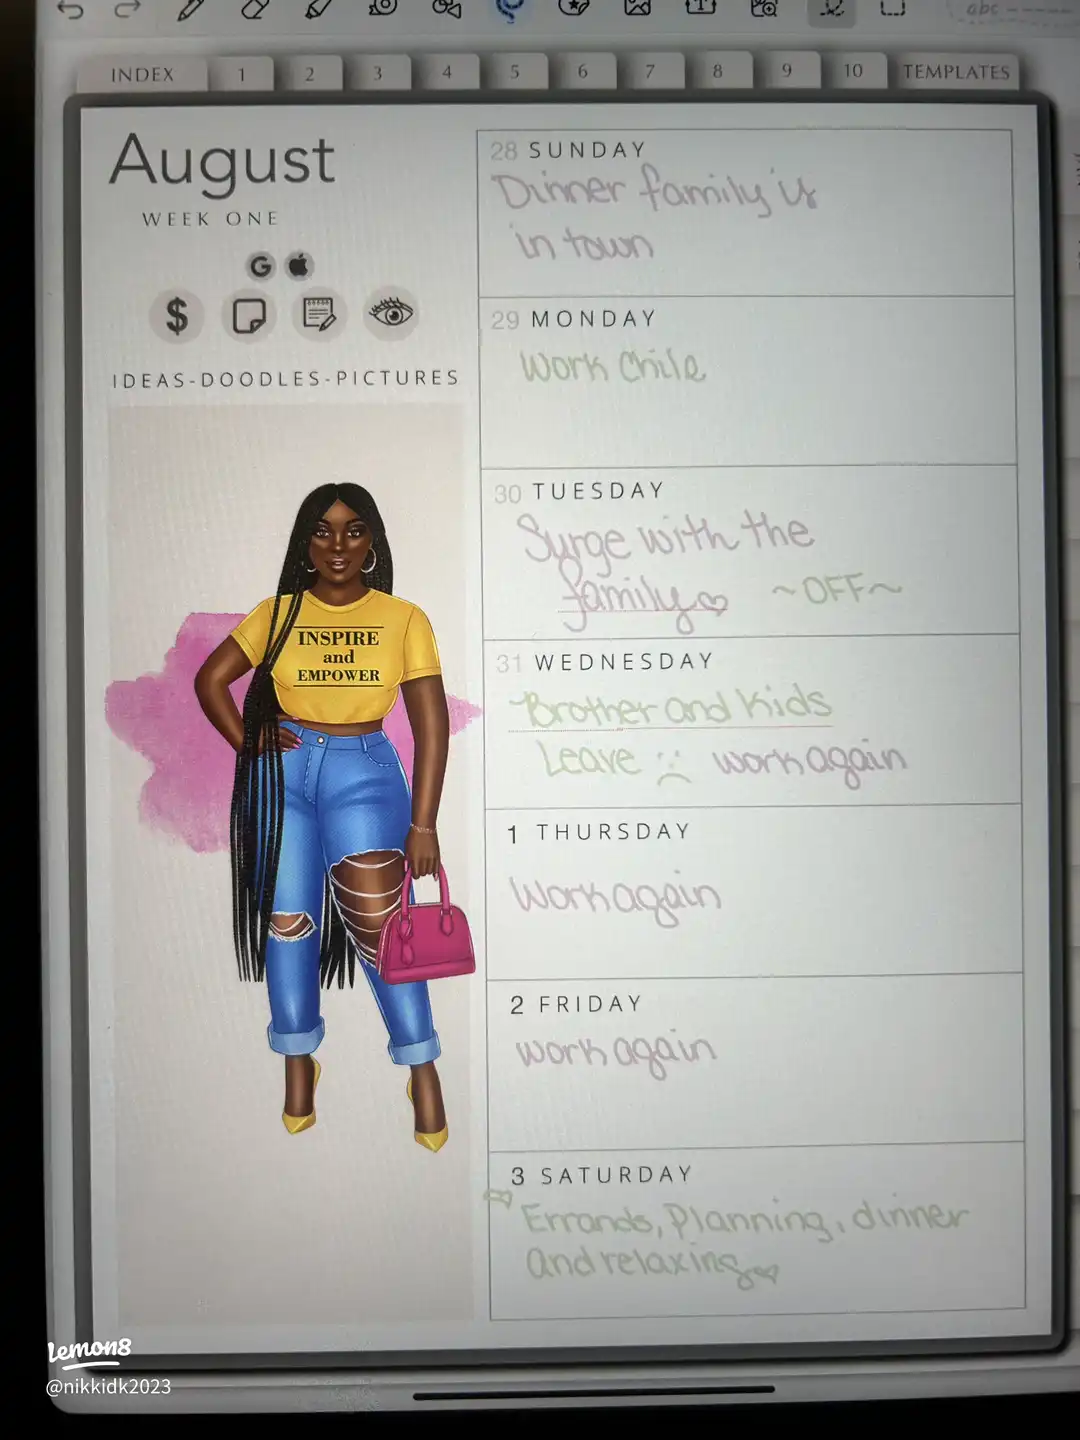 abc
INDEX 1 2 3 4 5 6 7 8 9 10 TEMPLATES
August
WEEK ONE
G
$
IDEAS-DOODLES-PICTURES
INSPIRE
and
EMPOWER
28 SUNDAY
Dinner family is
in town
29 MONDAY
Work Chile
30 TUESDAY
Surge with the
family ~OFF~
31 WEDNESDAY
Brother and kids
Leave :( work again
1 THURSDAY
Work again
2 FRIDAY
work again
3 SATURDAY
Errands, Planning, dinner
and relaxing
lemon8
@nikkidk2023